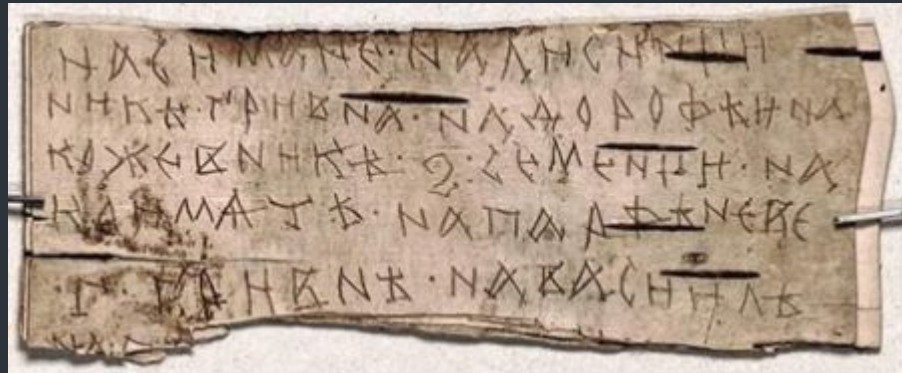 насимане·налиси
никѣ·гривна·надорофѣина
кожевникѣ·з·семенци·на
матѣ·напарфѣневе
·г·гривнѣ·навасиилѣ